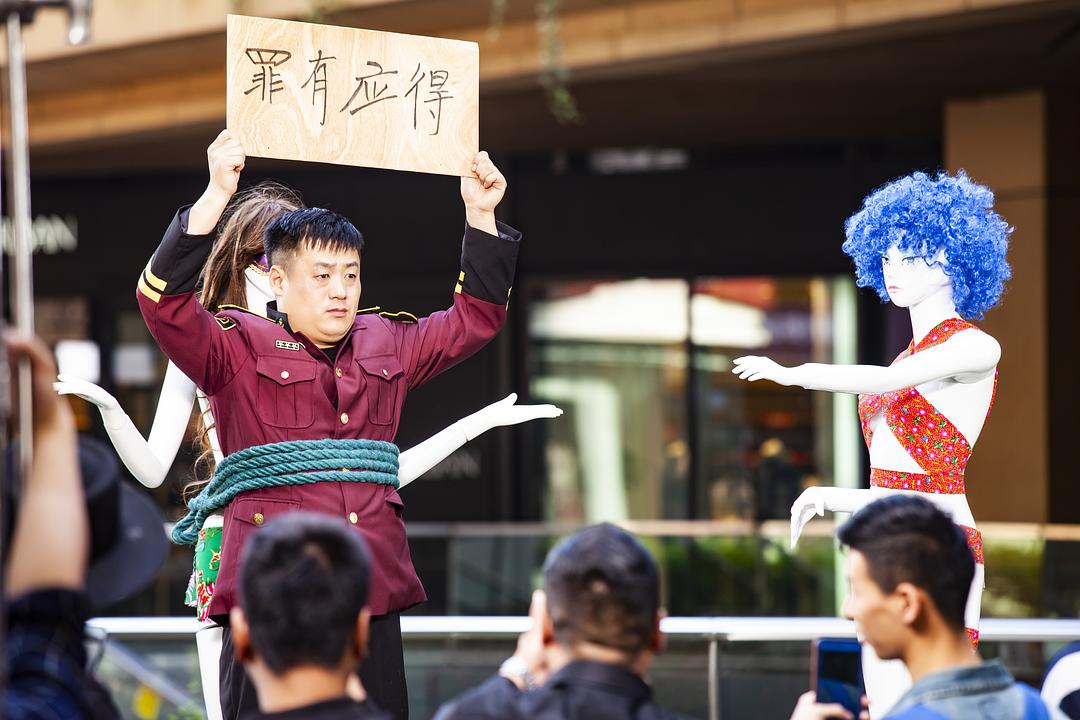 罪有应得